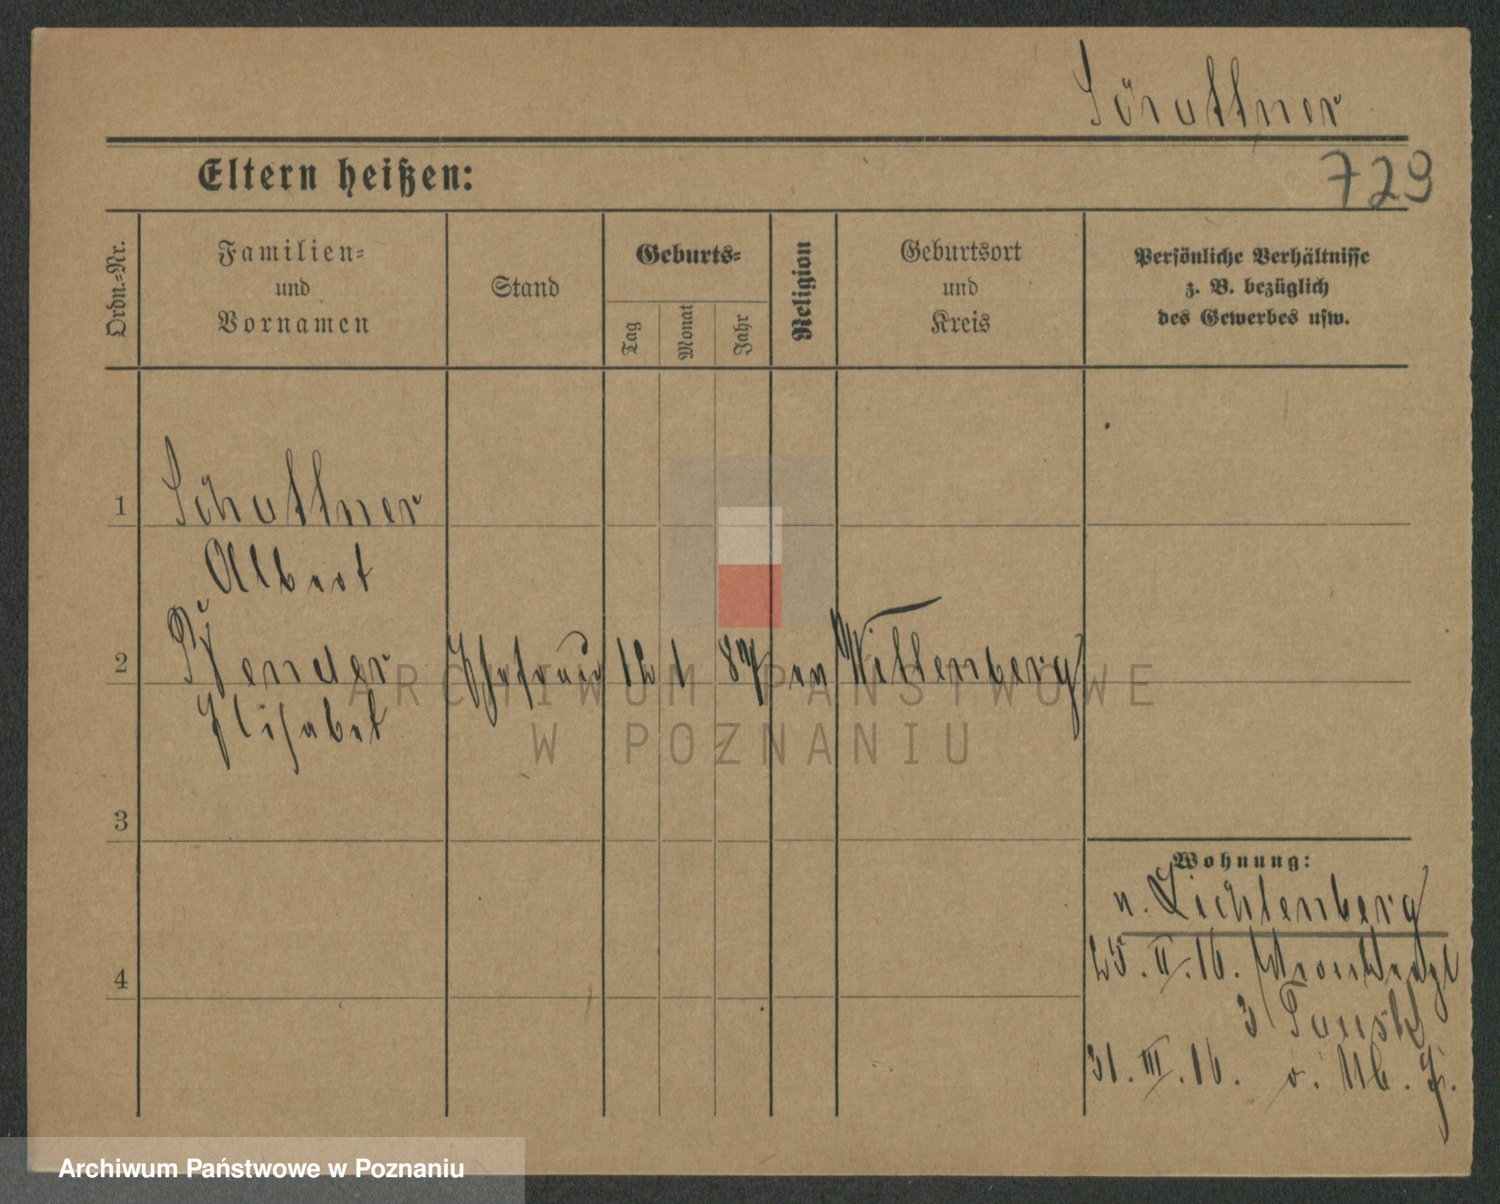 Schuttner
729
Eltern heißen:
Ordn.-Nr.
Familien-
und
Vornamen
Stand
Geburts-
Tag
Monat
Jahr
Religion
Geburtsort
und
Kreis
Persönliche Verhältnisse
z. B. bezüglich
des Gewerbes usw.
1
Schuttner
Albert
2
Elisabet
Ehefrau
12
1
87
ev
Wittenberg
3
Wohnung:
n. Lichtenberg
4
25. II. 16.
3
31. III. 16.
ARCHIWUM PAŃSTWOWE
W POZNANIU
Archiwum Państwowe w Poznaniu